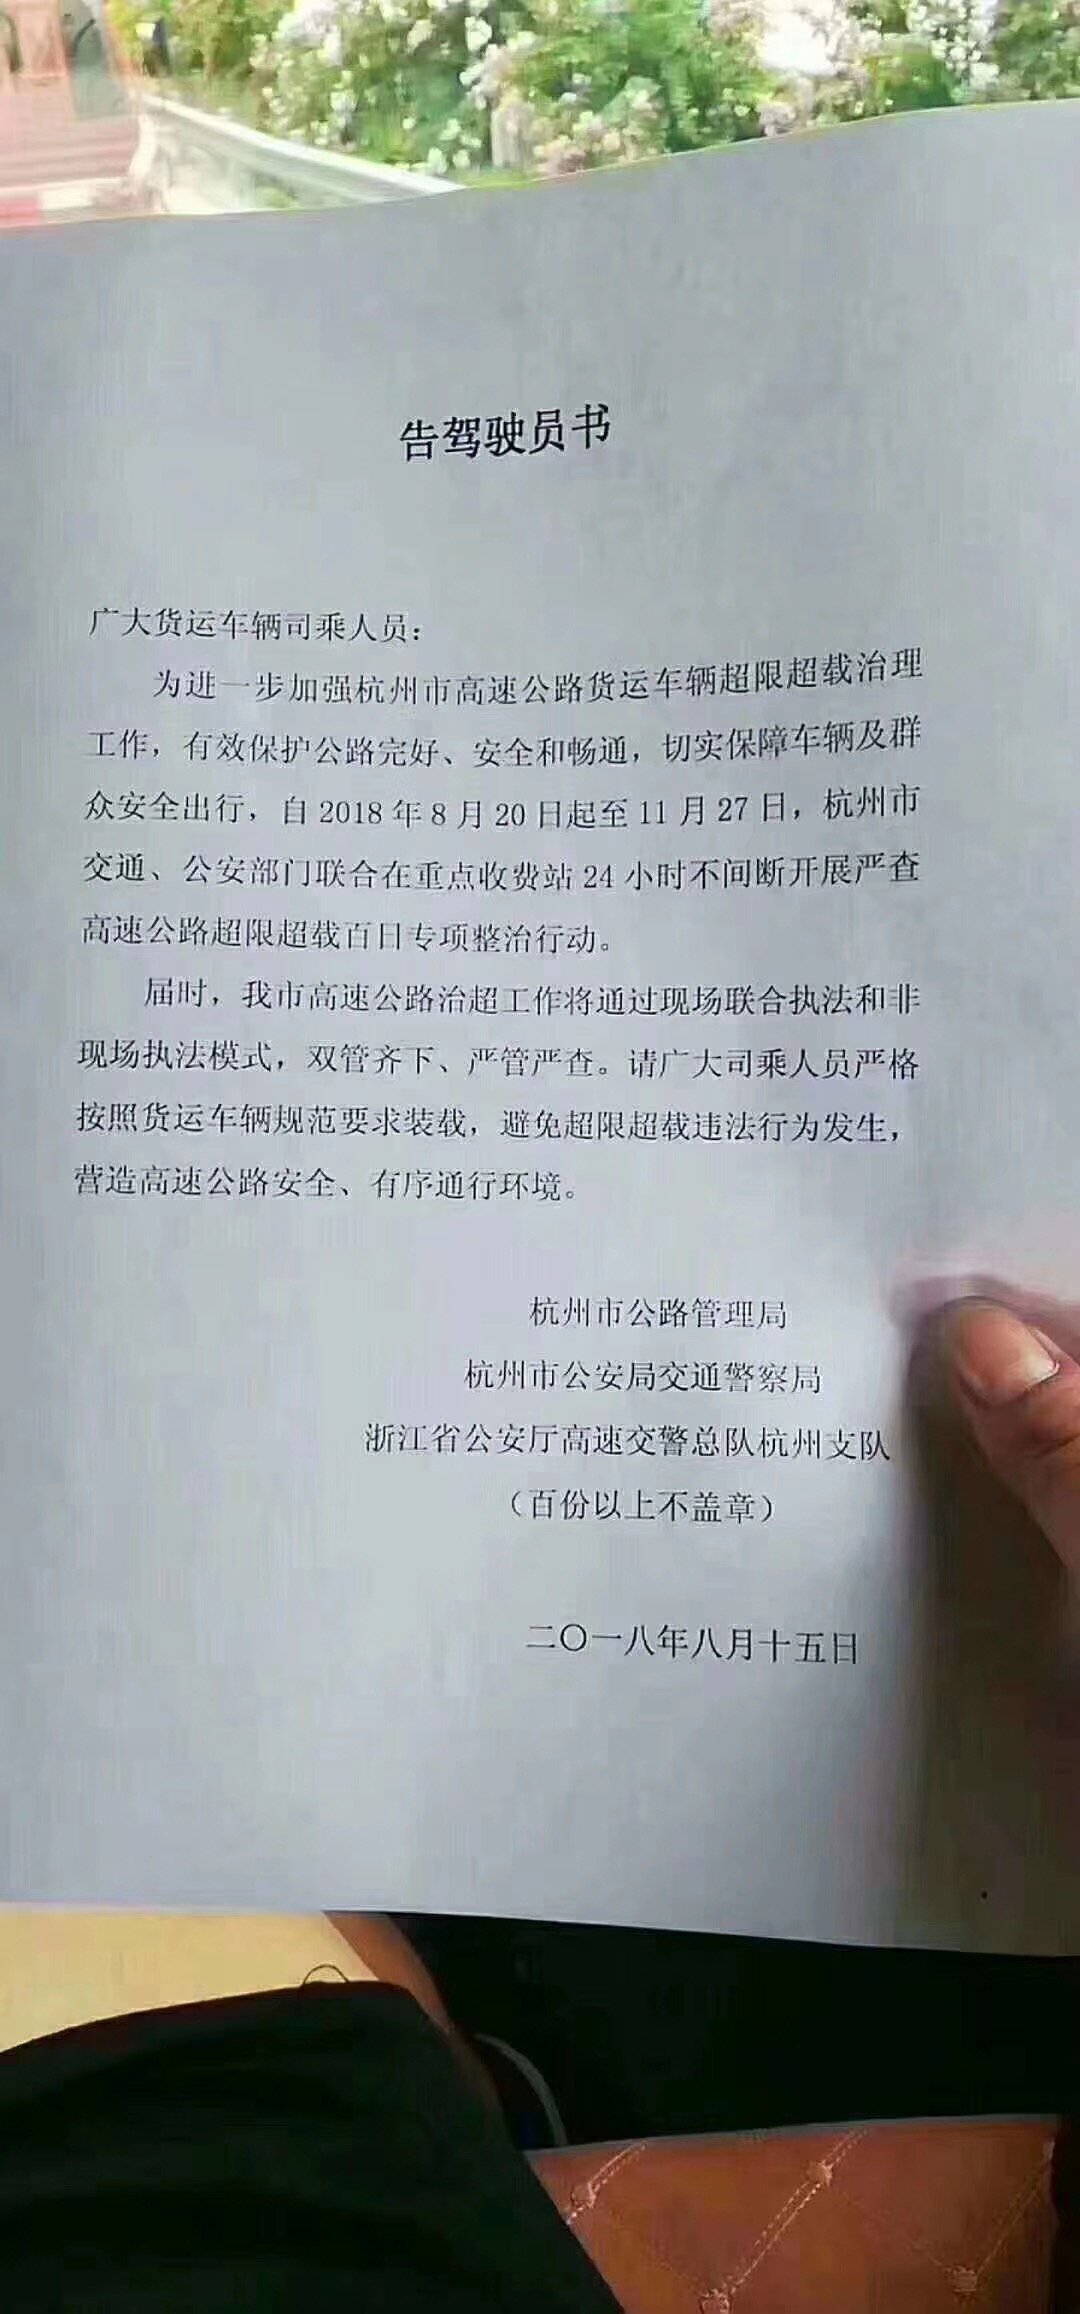 告驾驶员书
广大货运车辆司乘人员：
为进一步加强杭州市高速公路货运车辆超限超载治理
工作，有效保护公路完好、安全和畅通，切实保障车辆及群
众安全出行，自 2018 年 8 月 20 日起至 11 月 27 日，杭州市
交通、公安部门联合在重点收费站 24 小时不间断开展严查
高速公路超限超载百日专项整治行动。
届时，我市高速公路治超工作将通过现场联合执法和非
现场执法模式，双管齐下、严管严查。请广大司乘人员严格
按照货运车辆规范要求装载，避免超限超载违法行为发生，
营造高速公路安全、有序通行环境。
杭州市公路管理局
杭州市公安局交通警察局
浙江省公安厅高速交警总队杭州支队
（百份以上不盖章）
二〇一八年八月十五日